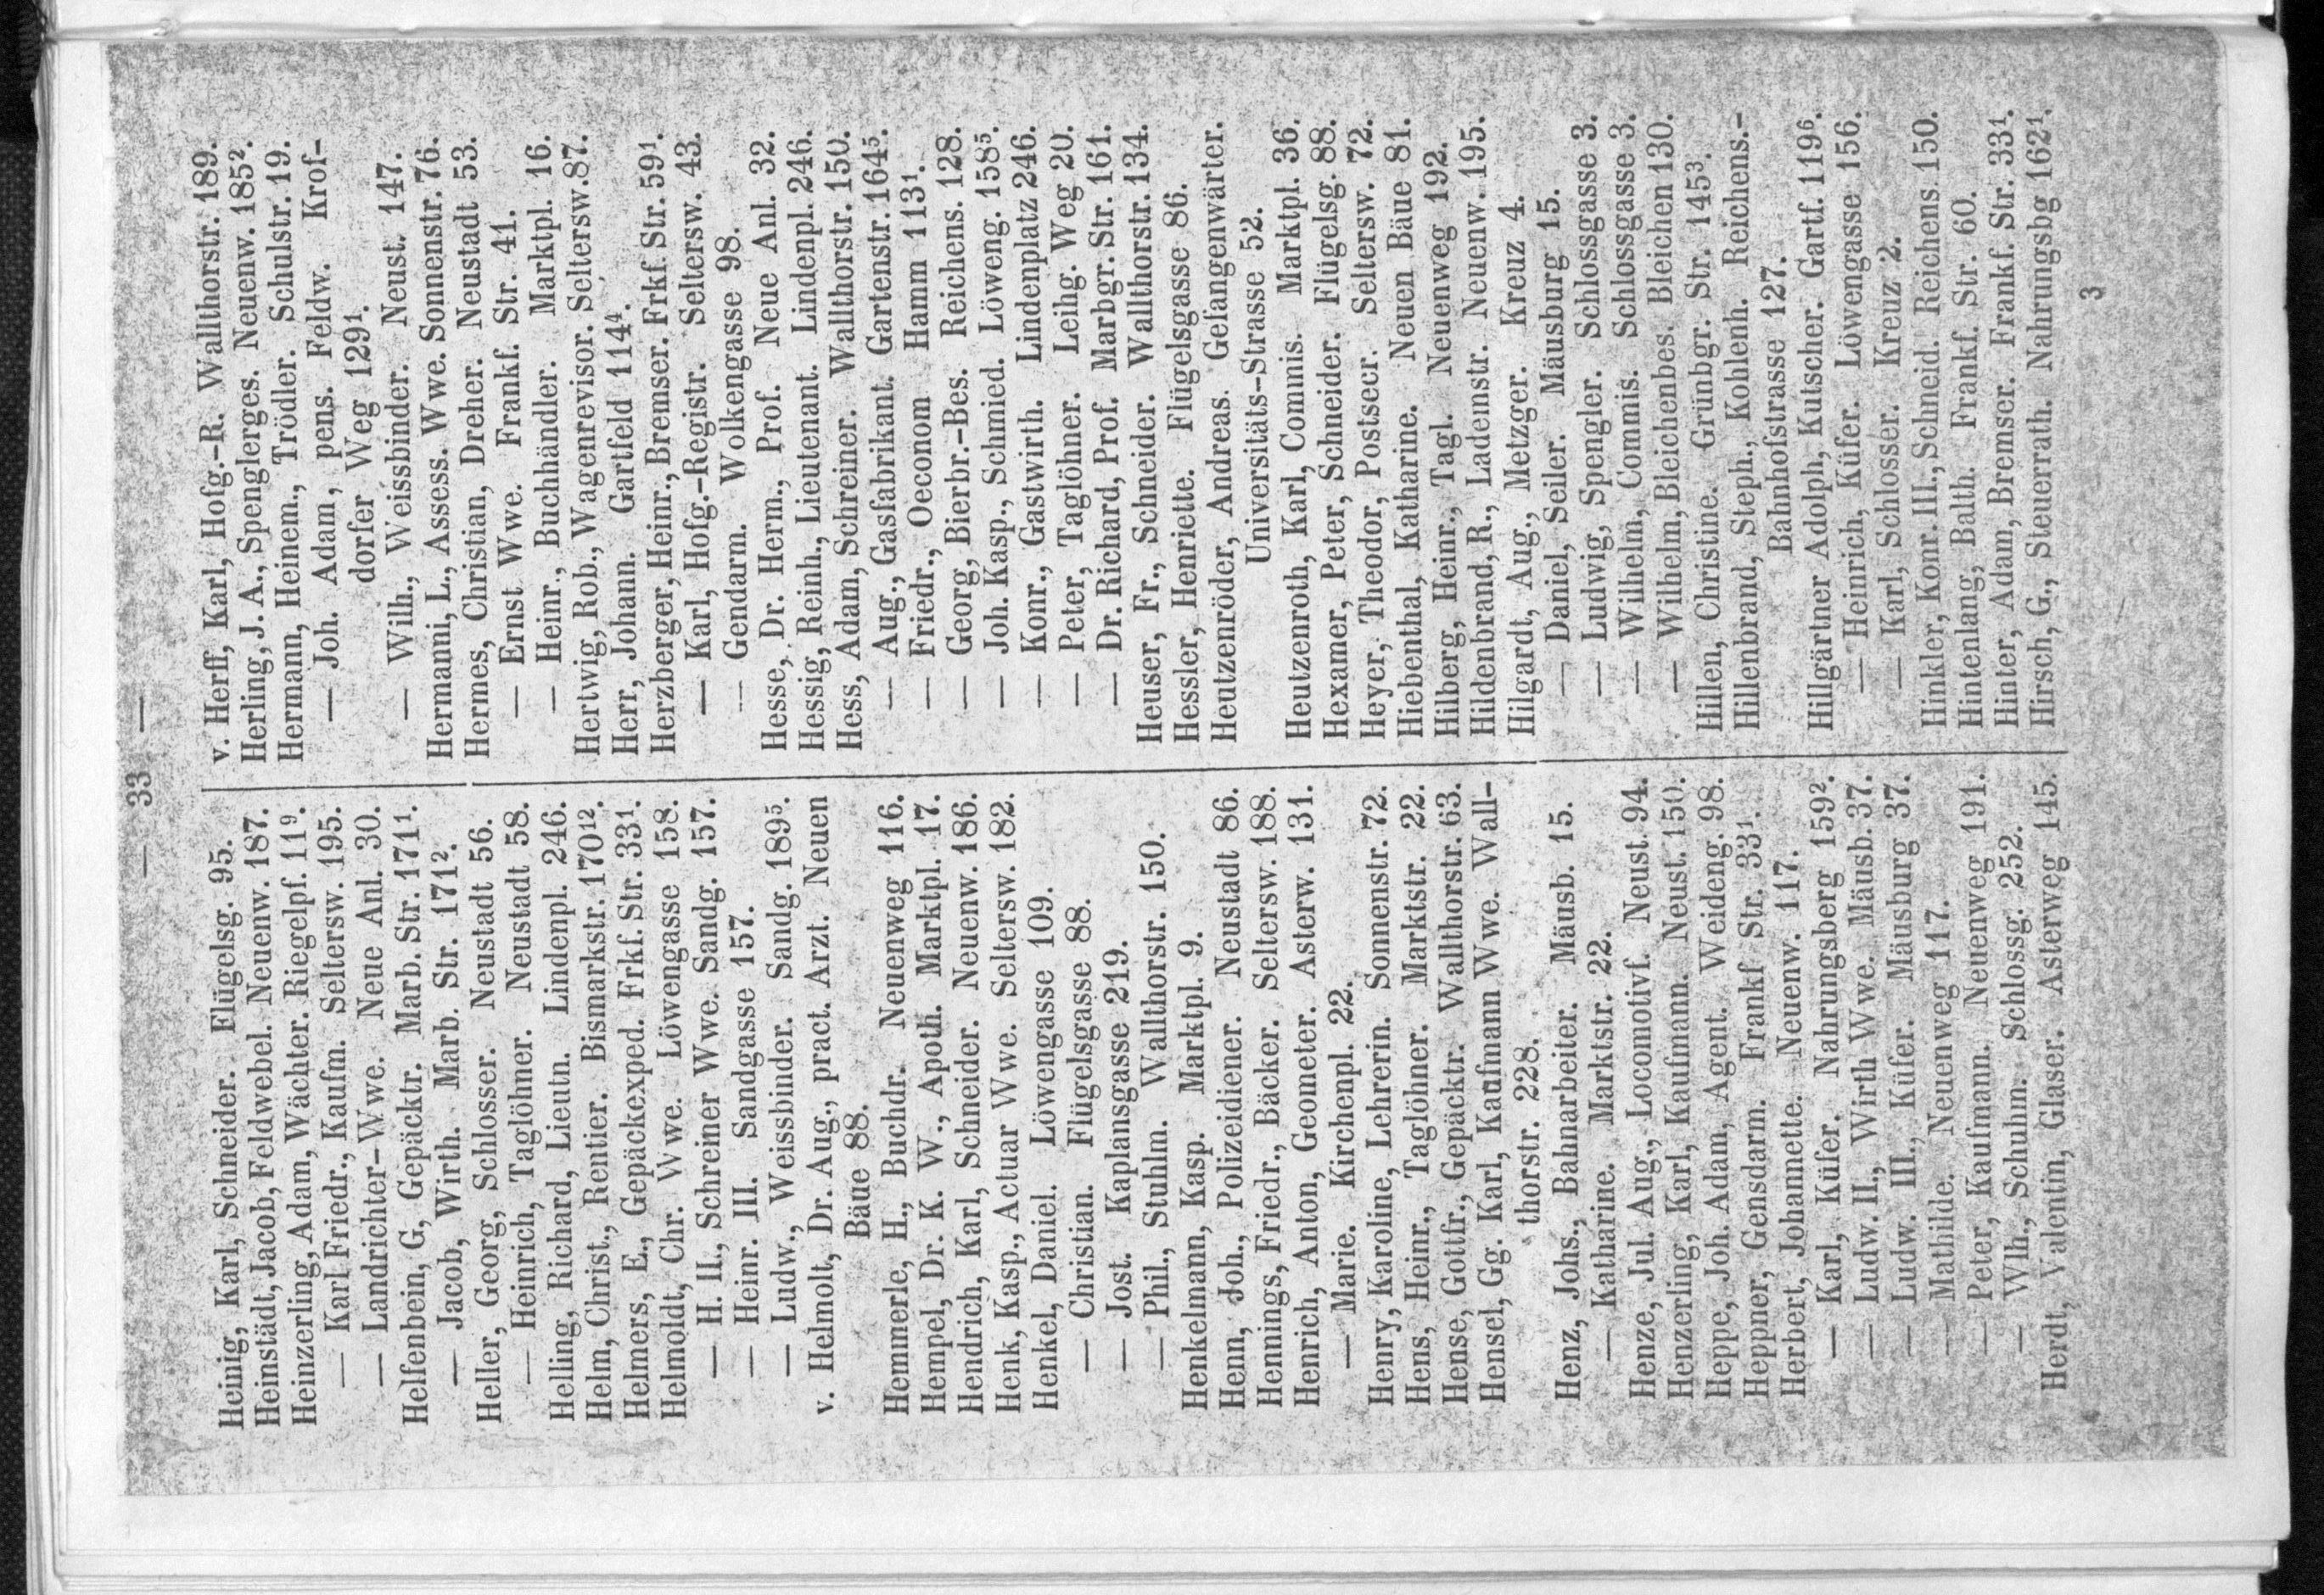 — 33 —
Heinig, Karl, Schneider. Flügelsg. 95.
Heinstädt, Jacob, Feldwebel. Neuenw. 187.
Heinzerling, Adam, Wächter. Riegelpf. 11⁹.
— Karl Friedr., Kaufm. Seltersw. 195.
— Landrichter-Wwe. Neue Anl. 30.
Helfenbein, G, Gepäcktr. Marb. Str. 171¹.
— Jacob, Wirth. Marb. Str. 171².
Heller, Georg, Schlosser. Neustadt 56.
— Heinrich, Taglöhner. Neustadt 58.
Helling, Richard, Lieutn. Lindenpl. 246.
Helm, Christ., Rentier. Bismarkstr. 170¹².
Helmers, E., Gepäckexped. Frkf. Str. 33¹.
Helmoldt, Chr. Wwe. Löwengasse 158.
— H. II., Schreiner Wwe. Sandg. 157.
— Heinr. III. Sandgasse 157.
— Ludw., Weissbinder. Sandg. 189⁵.
v. Helmolt, Dr. Aug., pract. Arzt. Neuen
Bäue 88.
Hemmerle, H., Buchdr. Neuenweg 116.
Hempel, Dr. K. W., Apoth. Marktpl. 17.
Hendrich, Karl, Schneider. Neuenw. 186.
Henk, Kasp., Actuar Wwe. Seltersw. 182.
Henkel, Daniel. Löwengasse 109.
— Christian. Flügelsgasse 88.
— Jost. Kaplansgasse 219.
— Phil., Stuhlm. Wallthorstr. 150.
Henkelmann, Kasp. Marktpl. 9.
Henn, Joh., Polizeidiener. Neustadt 86.
Hennings, Friedr., Bäcker. Seltersw. 188.
Henrich, Anton, Geometer. Asterw. 131.
— Marie. Kirchenpl. 22.
Henry, Karoline, Lehrerin. Sonnenstr. 72.
Hens, Heinr., Taglöhner. Marktstr. 22.
Hense, Gottfr., Gepäcktr. Wallthorstr. 63.
Hensel, Gg. Karl, Kaufmann Wwe. Wall-
thorstr. 228.
Henz, Johs., Bahnarbeiter. Mäusb. 15.
— Katharine. Marktstr. 22.
Henze, Jul. Aug., Locomotivf. Neust. 94.
Henzerling, Karl, Kaufmann. Neust. 150.
Heppe, Joh. Adam, Agent. Weideng. 98.
Heppner, Gensdarm. Frankf Str. 33¹.
Herbert, Johannette. Neuenw. 117.
— Karl, Küfer. Nahrungsberg 159².
— Ludw. II., Wirth Wwe. Mäusb. 37.
— Ludw. III., Küfer. Mäusburg 37.
— Mathilde. Neuenweg 117.
— Peter, Kaufmann. Neuenweg 191.
— Wlh., Schuhm. Schlossg. 252.
Herdt, Valentin, Glaser. Asterweg 145.
v. Herff, Karl, Hofg.-R. Wallthorstr. 189.
Herling, J. A., Spenglerges. Neuenw. 185².
Hermann, Heinem., Trödler. Schulstr. 19.
— Joh. Adam, pens. Feldw. Krof-
dorfer Weg 129¹.
— Wilh., Weissbinder. Neust. 147.
Hermanni, L., Assess. Wwe. Sonnenstr. 76.
Hermes, Christian, Dreher. Neustadt 53.
— Ernst Wwe. Frankf. Str. 41.
— Heinr., Buchhändler. Marktpl. 16.
Hertwig, Rob., Wagenrevisor. Seltersw. 87.
Herr, Johann. Gartfeld 114⁴.
Herzberger, Heinr., Bremser. Frkf. Str. 59¹.
— Karl, Hofg.-Registr. Seltersw. 43.
— Gendarm. Wolkengasse 98.
Hesse, Dr. Herm., Prof. Neue Anl. 32.
Hessig, Reinh., Lieutenant. Lindenpl. 246.
Hess, Adam, Schreiner. Wallthorstr. 150.
— Aug., Gasfabrikant. Gartenstr. 164⁵.
— Friedr., Oeconom Hamm 113¹.
— Georg, Bierbr.-Bes. Reichens. 128.
— Joh. Kasp., Schmied. Löweng. 158⁵.
— Konr., Gastwirth. Lindenplatz 246.
— Peter, Taglöhner. Leihg. Weg 20.
— Dr. Richard, Prof. Marbgr. Str. 161.
Heuser, Fr., Schneider. Wallthorstr. 134.
Hessler, Henriette. Flügelsgasse 86.
Heutzenröder, Andreas. Gefangenwärter.
Universitäts-Strasse 52.
Heutzenroth, Karl, Commis. Marktpl. 36.
Hexamer, Peter, Schneider. Flügelsg. 88.
Heyer, Theodor, Postsecr. Seltersw. 72.
Hiebenthal, Katharine. Neuen Bäue 81.
Hilberg, Heinr., Tagl. Neuenweg 192.
Hildenbrand, R., Ladenstr. Neuenw. 195.
Hilgardt, Aug., Metzger. Kreuz 4.
— Daniel, Seiler. Mäusburg 15.
— Ludwig, Spengler. Schlossgasse 3.
— Wilhelm, Commis. Schlossgasse 3.
— Wilhelm, Bleichenbes. Bleichen 130.
Hillen, Christine. Grünbgr. Str. 145³.
Hillenbrand, Steph., Kohlenh. Reichens.-
Bahnhofstrasse 127.
Hillgärtner Adolph, Kutscher. Gartf. 119⁶.
— Heinrich, Küfer. Löwengasse 156.
— Karl, Schlosser. Kreuz 2.
Hinkler, Konr. III., Schneid. Reichens. 150.
Hintenlang, Balth. Frankf. Str. 60.
Hinter, Adam, Bremser. Frankf. Str. 33¹.
Hirsch, G., Steuerrath. Nahrungsbg 162¹.
3